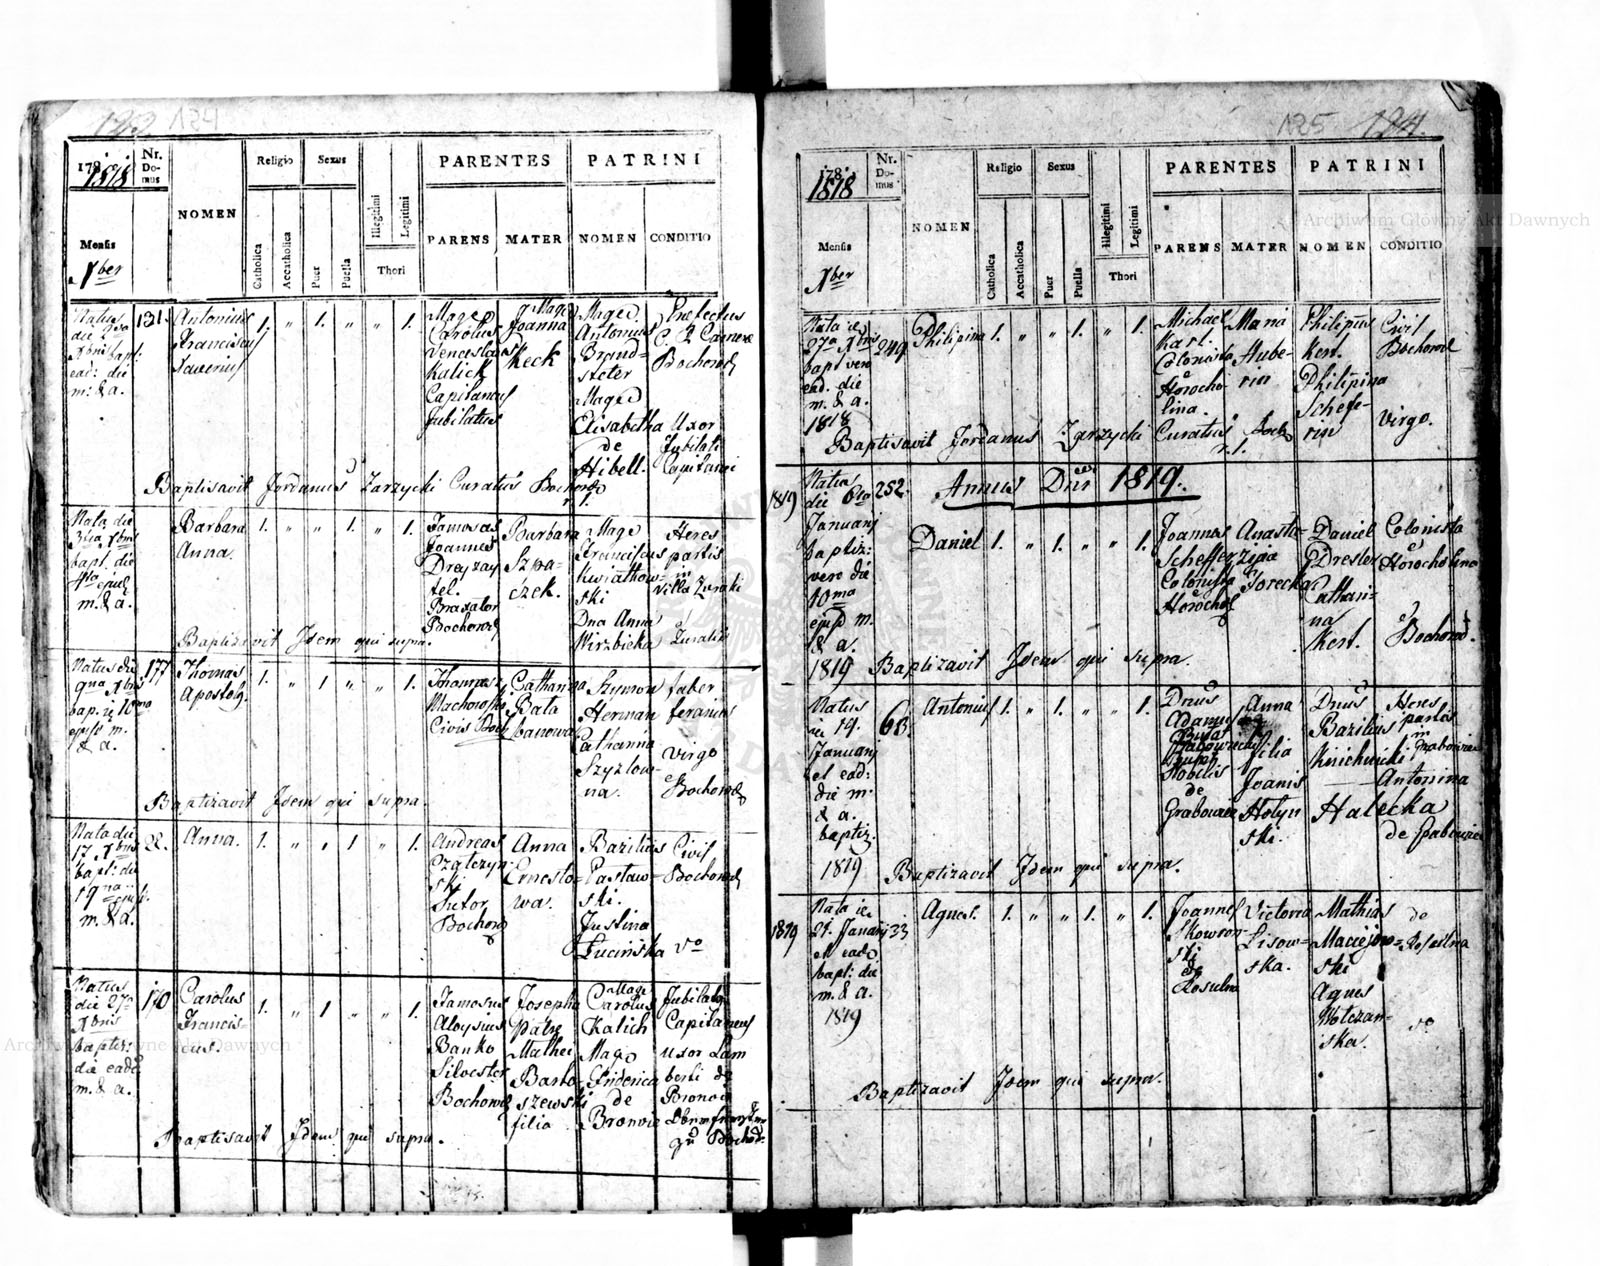 123 124
178 1818
Nr. Domus
NOMEN
Religio
Sexus
PARENTES
PATRINI
Mensis
Xber
Catholica
Accatholica
Puer
Puella
Illegitimi
Legitimi
Thori
PARENS
MATER
NOMEN
CONDITIO
Natus
die
Xbris bapt:
ead: die
m: & a.
131.
Antonius
Franciscus
Xaverius
1. „ 1. „ „ 1.
Mag D
Carolus
Venceslaus
Kalick
Capitaneus
Jubilatus
G Mag
Joanna
Keck
Mag D
Antonius
Brand=
steter
Mag D
Elisabetha
de
Hibell.
Praefectus
C. R. Camerae
Bochorod
Uxor
Jubilati
Capitanei
Baptisavit Jordanus Zarzycki Curatus Bochorod
Nata die
3tia Xbris
bapt. die
4ta ejusd
m. & a.
Barbara
Anna.
1. „ „ 1. „ 1.
Famosus
Joannes
Dreyzay
tel.
Braxator
Bochorod
Barbara
Szwa=
czek.
Mag D
Franciscus
Kwiatkow=
ski
Dna Anna
Wirzbicka
Heres
partis
in
Villa Zuraki
Zuraki
Baptizavit Idem qui supra.
Natus die
9na Xbris
bap. ie 10ma
ejusd m.
& a.
177
Thomas
Apostoły.
1. „ 1 „ „ 1.
Thomas
Machowski
Civis Boch
Catharina
Bala
banowa
Szymon
Herman
Catharina
Szyzlow=
na.
faber
ferarius
Virgo
Bochorod
Baptizavit Idem qui supra.
Nata die
17 Xbris
bapt: die
19na ejusd.
m. & a.
2.
Anna.
1. „ „ 1 „ 1.
Andreas
Szatczyn
ski
Sutor
Bochorod
Anna
Ernesto=
wa.
Bazilius
Pastaw=
ski.
Justina
Łucińska
Civis
Bochorod
Vo
Natus
die 27a
Xbris
baptiz:
die eade
m. & a.
170
Carolus
Francis=
cus.
1. „ 1 „ „ 1.
Famosus
Aloysius
Banko
Silvester
Bochorod
Josepha
patre
Mathei
Barto=
szewski
filia
Mag
Carolus
Kalich
Mag D
Friderica
de
Bronvie
Jubilatus
Capitaneus
Uxor Lam
berti de
Baptisavit Idem qui supra.
125 124.
178 1818
Nr. Domus
NOMEN
Religio
Sexus
PARENTES
PATRINI
Mensis
Xber
Catholica
Accatholica
Puer
Puella
Illegitimi
Legitimi
Thori
PARENS
MATER
NOMEN
CONDITIO
Nata ie
27a Xbris
bapt vero
ead. die
m. & a.
1818
249
Philipina
1. „ „ 1. „ 1.
Michael
Karl.
Colonista
Horocho=
lina.
Maria
Hube=
rin
Philipus
Kest.
Philipina
Schefe=
rin
Civis
Bochorod
Virgo.
Baptisavit Jordanus Zarzycki Curatus Boch
Annus Dni 1819.
1819
Natus
die 6ta
Januarj
baptiz:
vero die
10ma
ejusd m.
& a.
1819
252.
Daniel
1. „ 1. „ „ 1.
Joannes
Scheffer
Colonista
Horochol
Anasta=
zyia
Jorecka
Daniel
Dresler
Cathari=
na
Kest.
Colonista
Horocholina
Bochorod.
Baptizavit Idem qui supra.
Natus
ie 19.
Januarj
et ead:
die m.
& a.
baptiz.
1819
63.
Antonius
1. „ 1. „ „ 1.
Dnus
Adamus
Nobilis
de
Grabowiec
Anna
filia
Joanis
Hołyn
ski.
Dnus
Bazilius
Kniehinicki
Halecka
Heres
partis
in
Grabowiec
Antonina
de Grabowiec
Baptizavit Idem qui supra.
1819
Nata ie.
21. Januarj
et eade
bapt: die
m. & a.
1819
33
Agnes.
1. „ „ 1. „ 1.
Joannes
Skowron
ski
de
Rosulna
Victoria
Lisow=
ska.
Mathias
Maciejow=
ski
Agnes
Wolczan=
ska.
de
Rosulna
Vo
Baptizavit Idem qui supra.
Archiwum Główne Akt Dawnych
Archiwum Główne Akt Dawnych